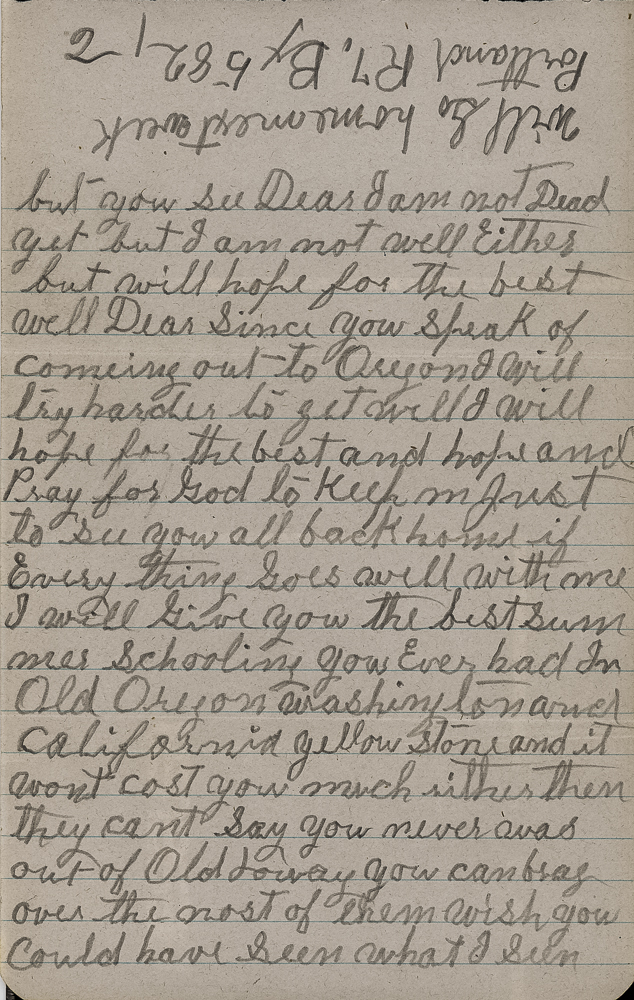 will Go home next week
Portland R7, Bx 582, 2
but you see Dear I am not Dead
yet but I am not well Either
but will hope for the best
well Dear Since you speak of
comeing out to Oregon I will
try harder to get well I will
hope for the best and hope and
Pray for God to Keep m Just
to see you all back home if
Every thing Goes well with me
I will Give you the best sum
mer schooling you Ever had In
Old Oregon washington and
California yellow stone and it
wont cost you muchither then
they cant Say you never was
out of Old Ioway you can brag
over the most of them wish you
Could have Seen what I Seen